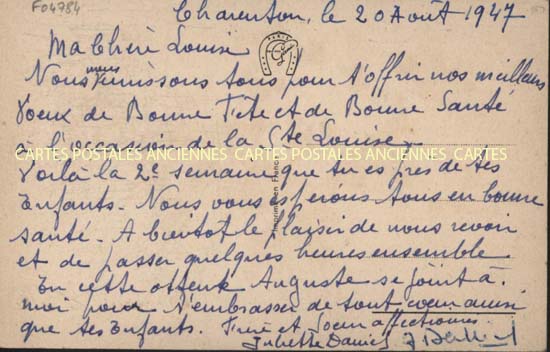 F04784
Charenton, le 20 Août 1947
Ma Chère Louise
Nous nous réunissons tous pour t'offrir nos meilleurs
Voeux de Bonne Fête et de Bonne Santé
à l'occasion de la Ste Louise
CARTES POSTALES ANCIENNES CARTES POSTALES ANCIENNES CARTES
Voilà la 2e semaine que tu es près de tes
Enfants. Nous vous espérons tous en bonne
santé. A bientôt le plaisir de nous revoir
et de passer quelques heures ensemble
En cette attente Auguste se joint à
moi pour t'embrasser de tout coeur ainsi
que tes Enfants. Frère et Soeur affectionnés
Juliette Daniel
PARIS
Imprimé en France